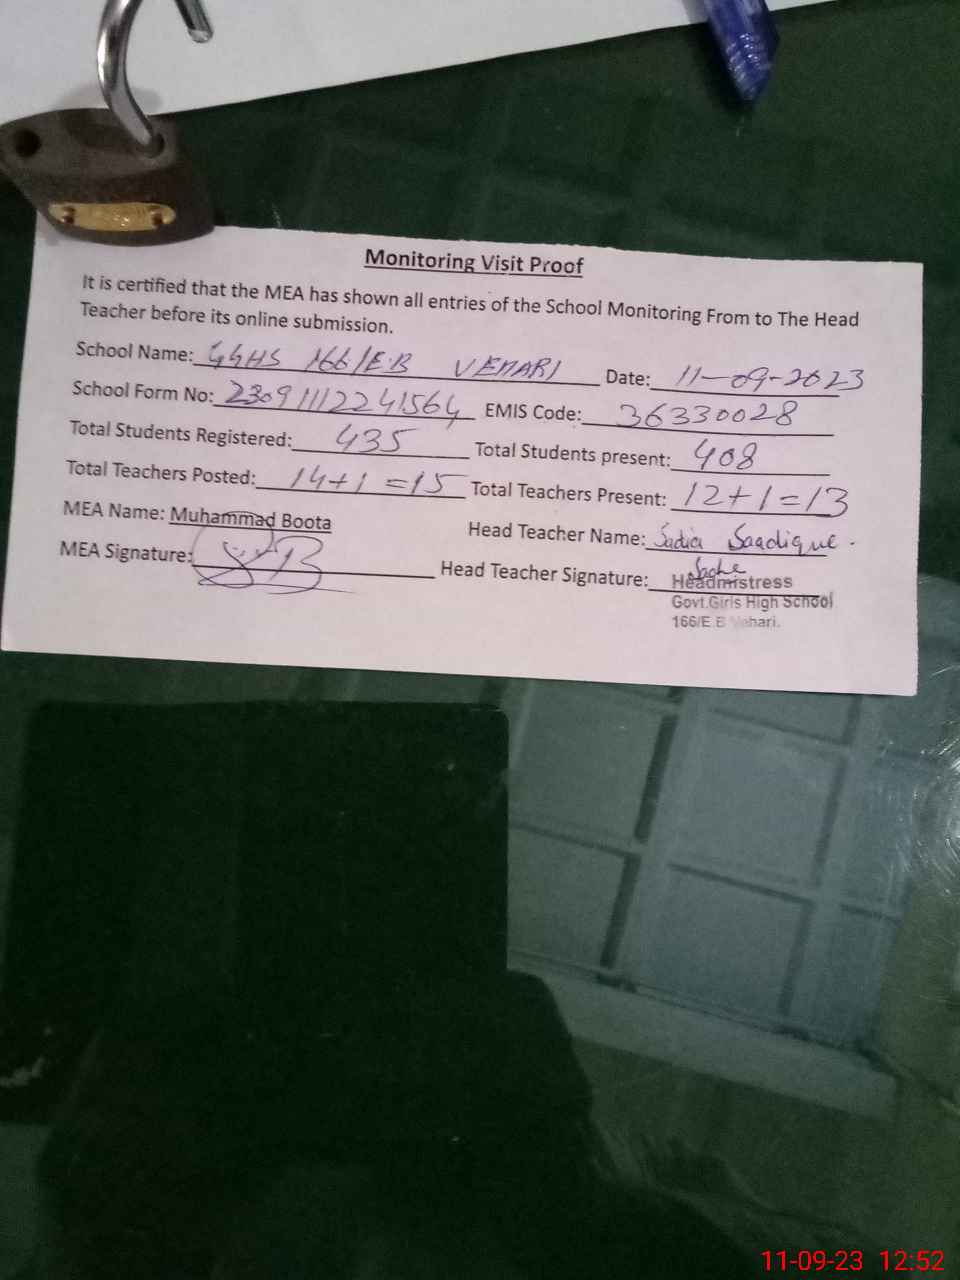 Monitoring Visit Proof
It is certified that the MEA has shown all entries of the School Monitoring From to The Head
Teacher before its online submission.
School Name: GGHS 166/E.B VEHARI Date: 11-09-2023
School Form No: 23091112241564 EMIS Code: 36330028
Total Students Registered: 435 Total Students present: 408
Total Teachers Posted: 14+1=15 Total Teachers Present: 12+1=13
MEA Name: Muhammad Boota Head Teacher Name: Sadia Saadique.
MEA Signature: Head Teacher Signature:
Headmistress
Govt.Girls High School
166/E.B Vehari.
11-09-23 12:52